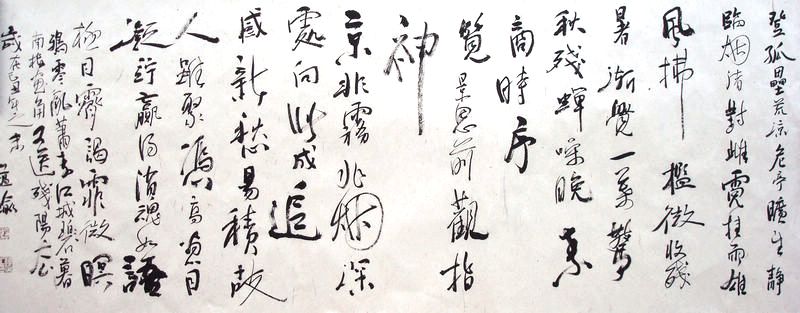 登孤壘荒凉危亭曠望靜
臨烟渚對雌霓挂雨雄
風拂檻微收殘
暑漸覺一葉驚
秋殘蟬噪晚素
商時序
覽景思前觀指
神
京非霧非烟深
處向此成追
感新愁易積故
人難聚憑高盡日
凝竚贏得消魂无語
極目霽靄霏微暝
鴉零亂蕭索江城暮
南樓畫角又送殘陽去
歲在己丑年之